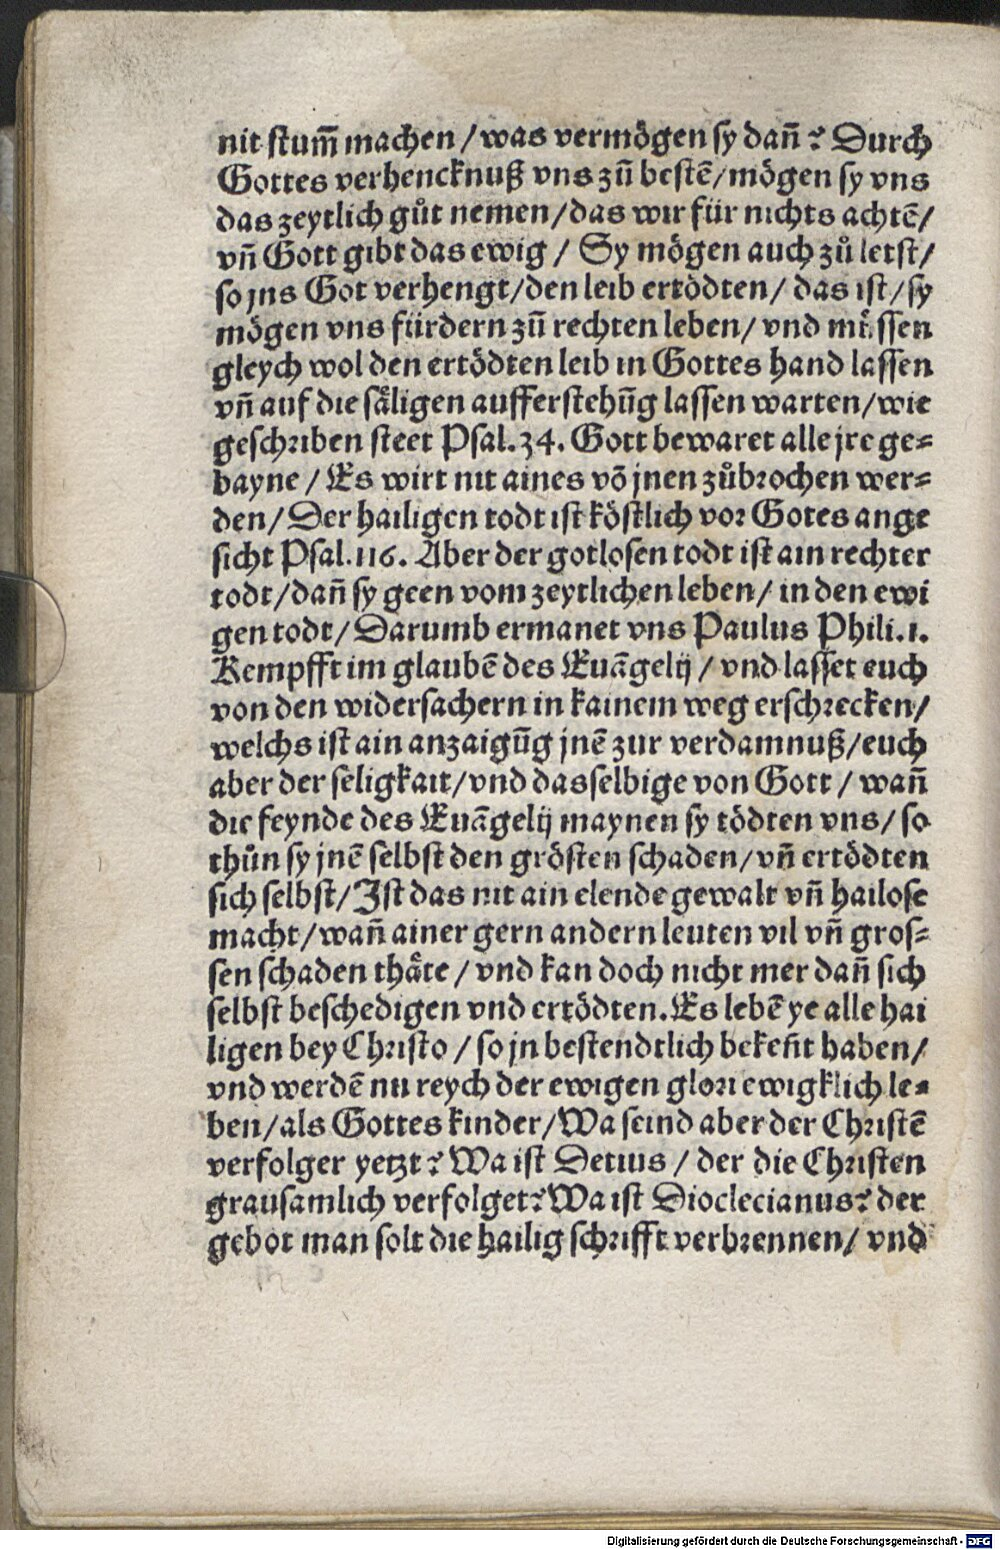 nit stum̄ machen / was vermögen sy dañ? Durch
Gottes verhencknuß vns zū bestē / mögen sy vns
das zeytlich gůt nemen / das wir für nichts achtē /
vñ Gott gibt das ewig / Sy mögen auch zů letst /
so jns Got verhengt / den leib ertödten / das ist / sy
mögen vns fürdern zū rechten leben / vnd
gleych wol den ertödten leib in Gottes hand lassen
vñ auf die säligen aufferstehūg lassen warten / wie
geschriben steet Psal. 34. Gott bewaret alle jre ge⸗
bayne / Es wirt nit aines vō jnen zůbrochen wer⸗
den / Der hailigen todt ist köstlich vor Gotes ange
sicht Psal. 116. Aber der gotlosen todt ist ain rechter
todt / dañ sy geen vom zeytlichen leben / in den ewi
gen todt / Darumb ermanet vns Paulus Phili. 1.
Kempfft im glaubē des Euāgelij / vnd lasset euch
von den widersachern in kainem weg erschrecken /
welchs ist ain anzaigūg jnē zur verdamnuß / euch
aber der seligkait / vnd dasselbige von Gott / wañ
die feynde des Euāgelij maynen sy tödten vns / so
thůn sy jnē selbst den grösten schaden / vñ ertödten
sich selbst / Ist das nit ain elende gewalt vñ hailose
macht / wañ ainer gern andern leuten vil vñ gros⸗
sen schaden thäte / vnd kan doch nicht mer dañ sich
selbst beschedigen vnd ertödten. Es lebē ye alle hai
ligen bey Christo / so jn bestendtlich bekeñt haben /
vnd werdē im reych der ewigen glori ewigklich le⸗
ben / als Gottes kinder / Wa seind aber der Christē
verfolger yetzt? Wa ist Detius / der die Christen
grausamlich verfolget? Wa ist Dioclecianus? der
gebot man solt die hailig schrifft verbrennen / vnd
Digitalisierung gefördert durch die Deutsche Forschungsgemeinschaft - DFG